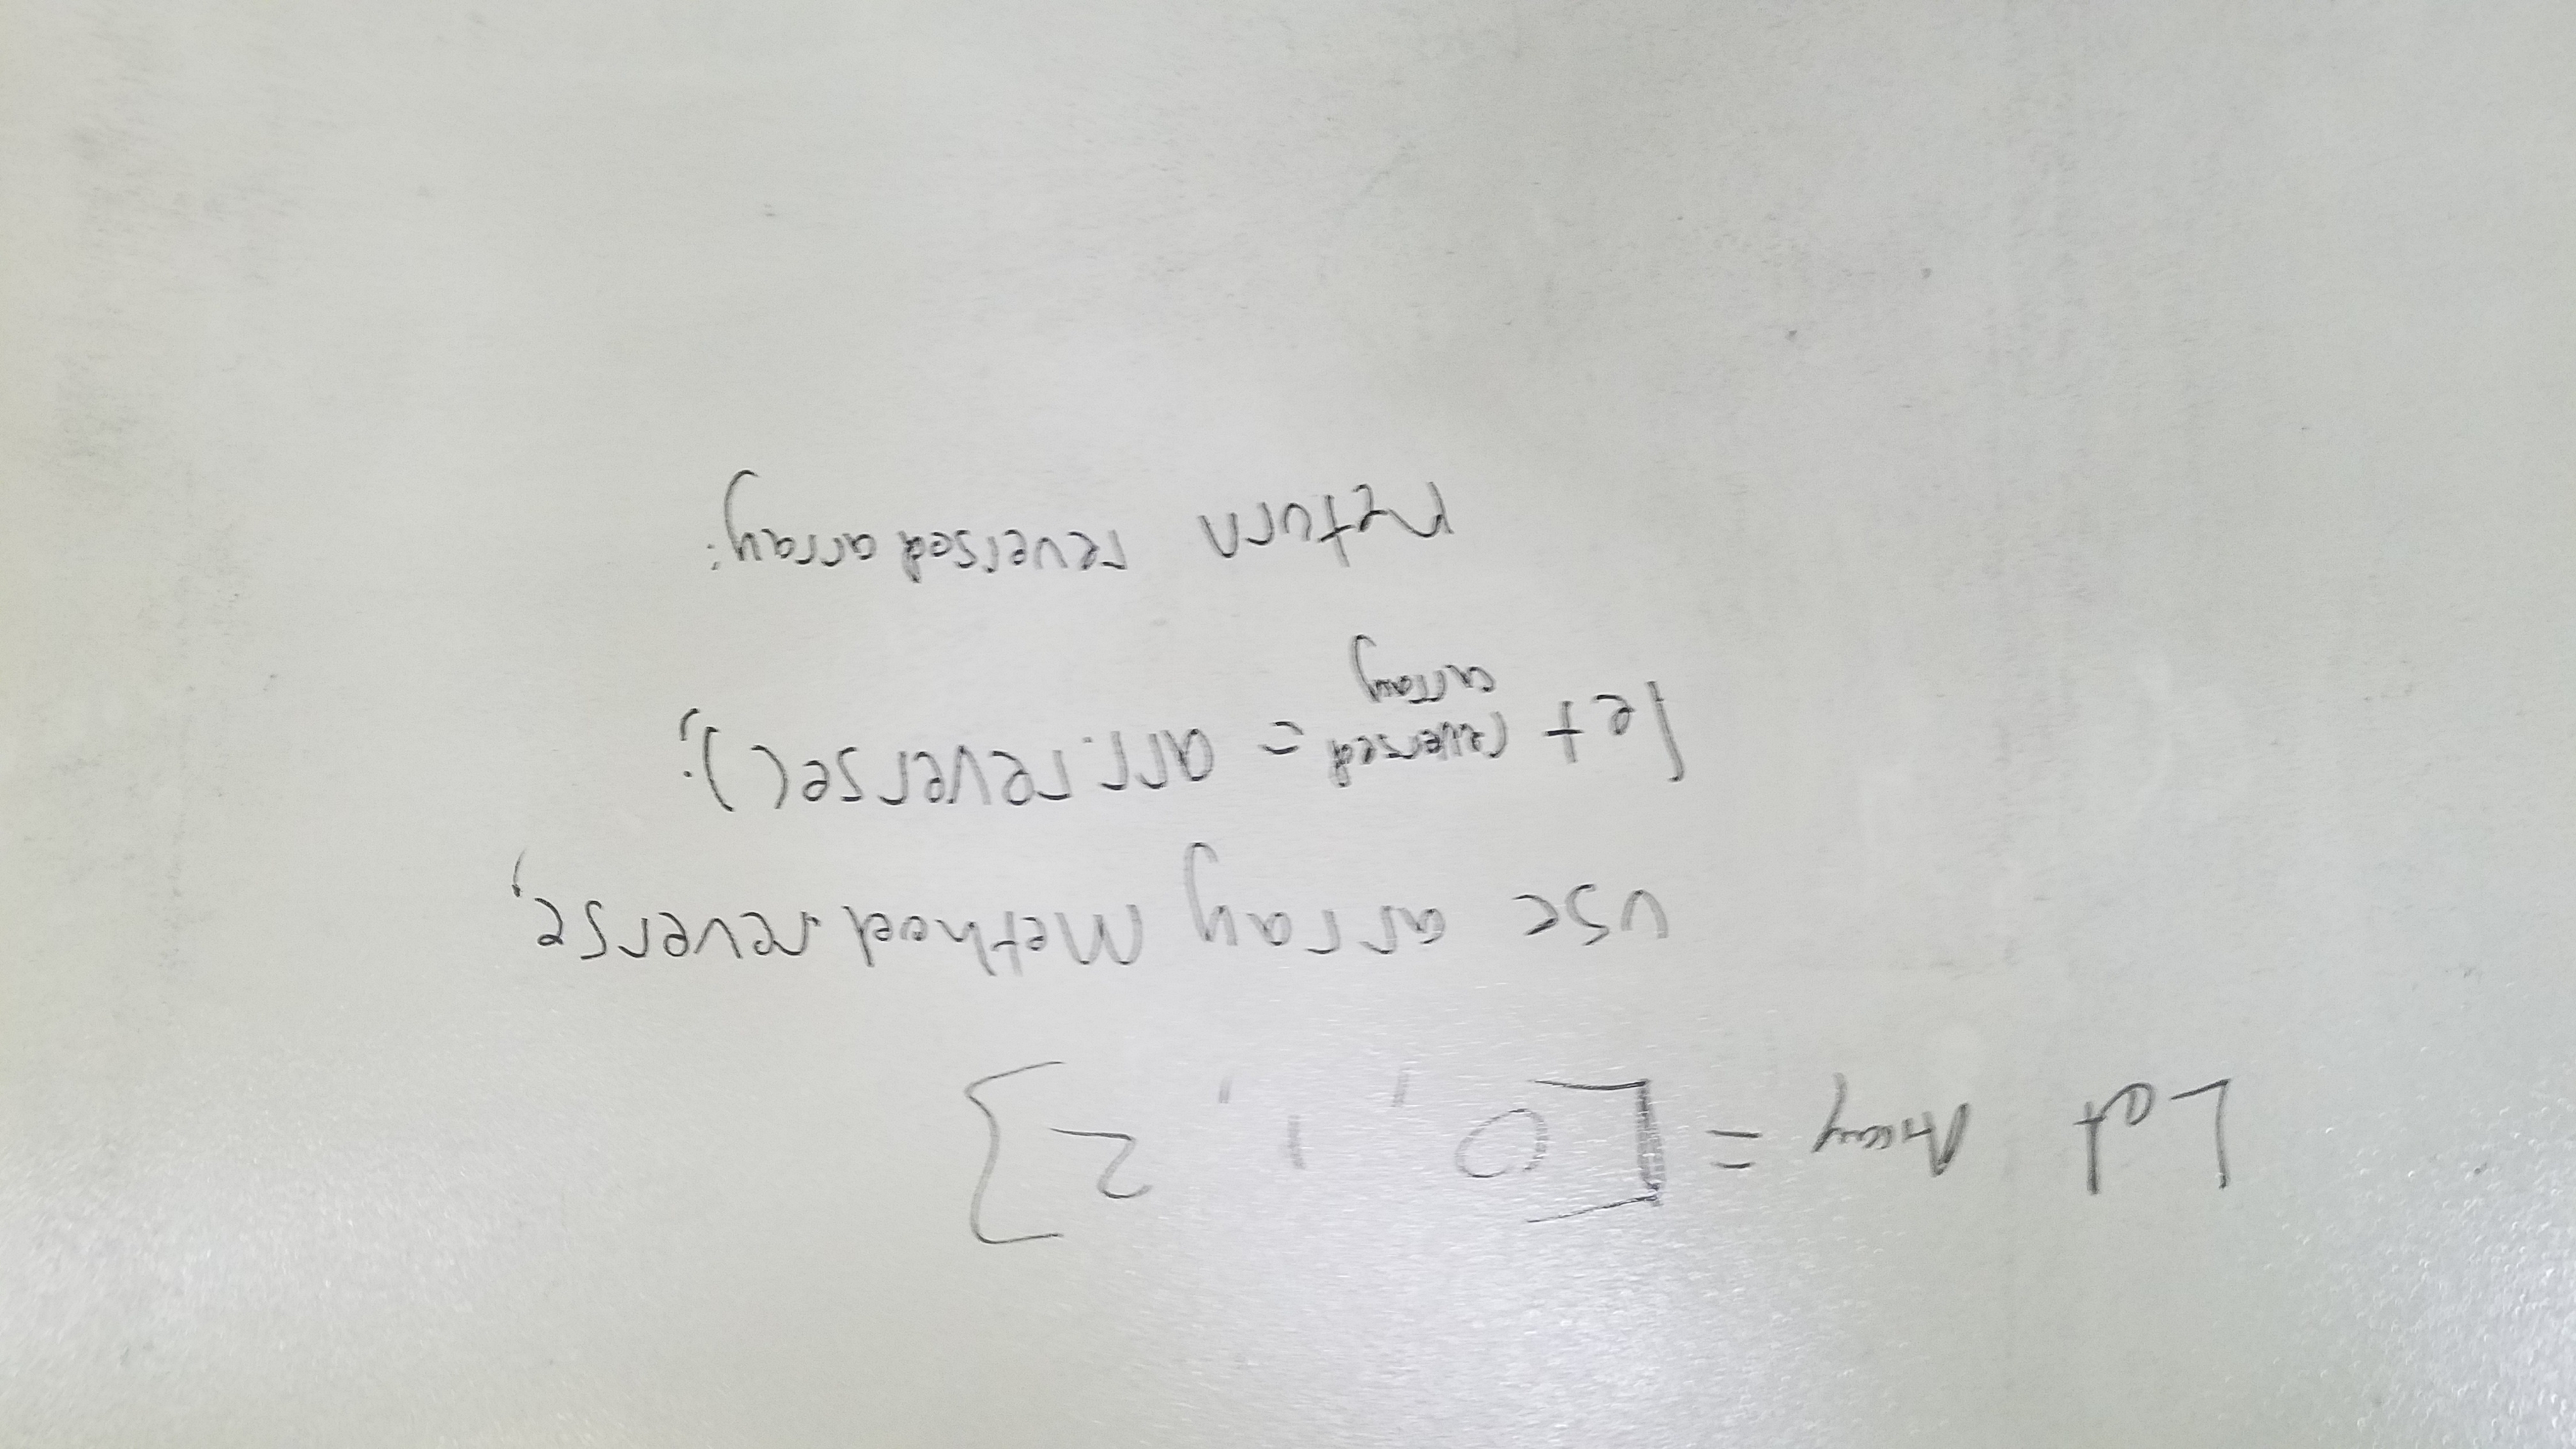 Let Array = [0, 1, 2]
use array Method .reverse,
let reversed = arr.reverse();
array
return reversed array: